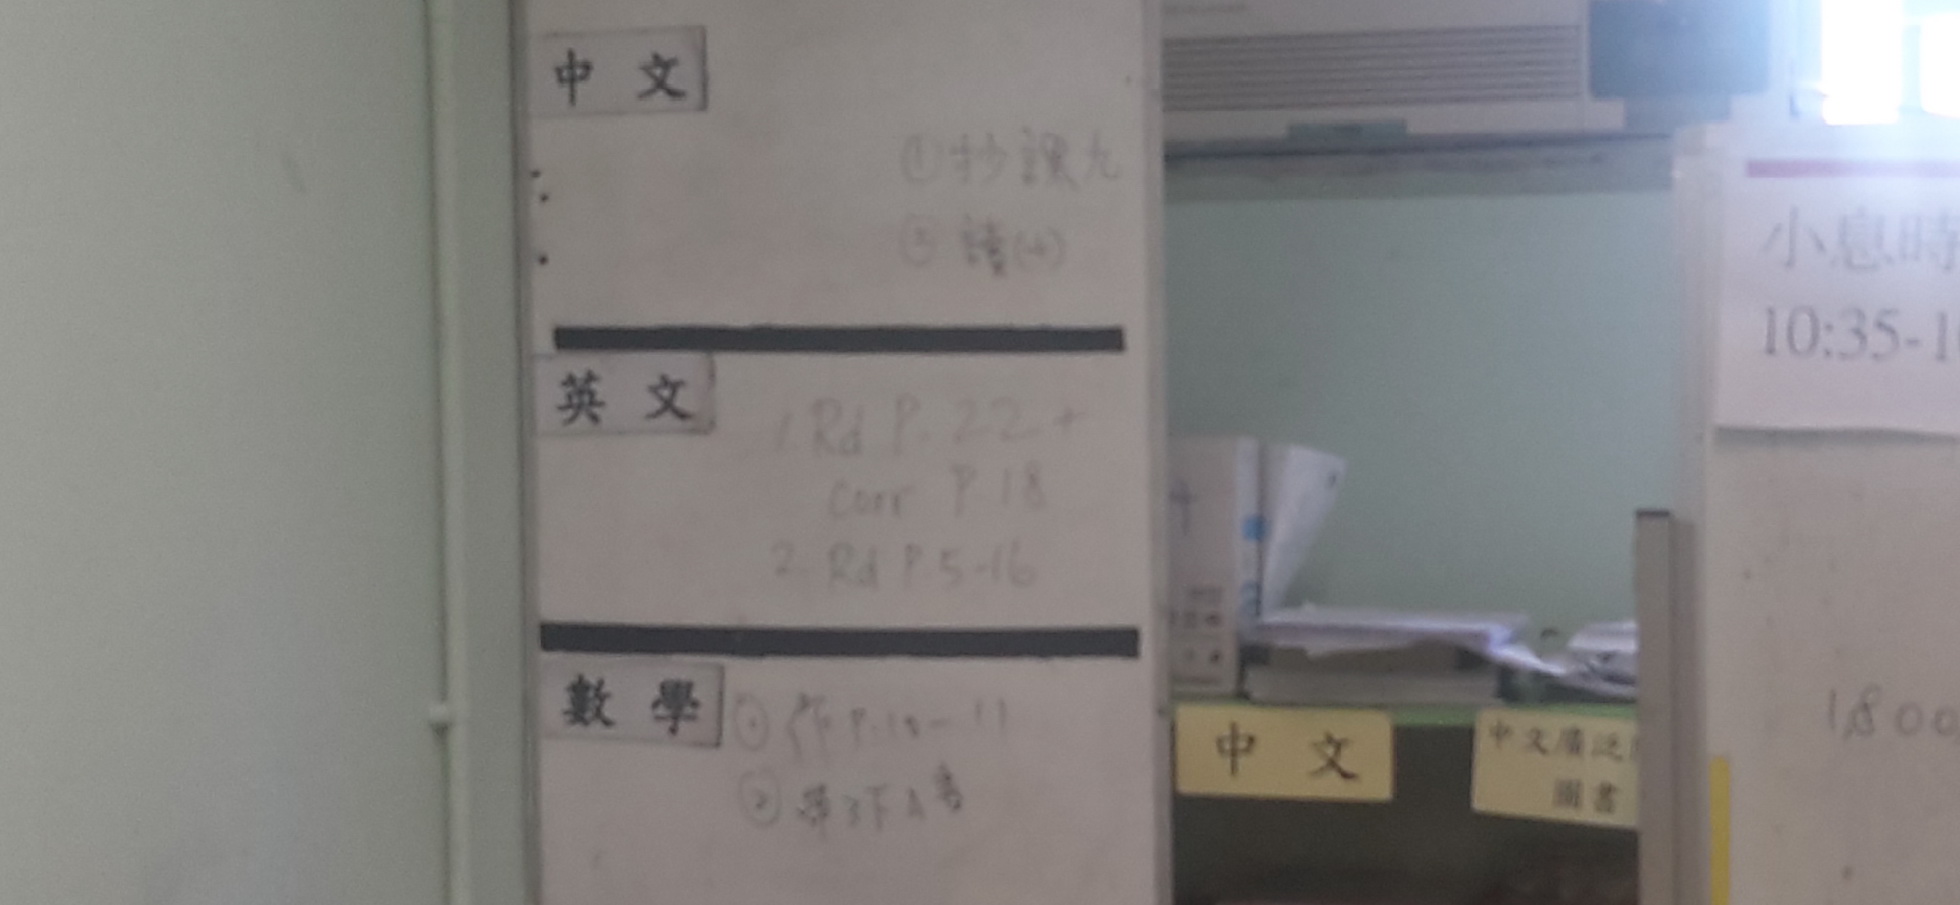 中文
①抄課九
②讀(4)
英文
1. Rd P. 22 +
corr P. 18
2. Rd P. 5-16
數學
① 作 P. 10-11
② 帶3下A書
中文
中文廣泛
圖書
小息時
10:35-1
1,800